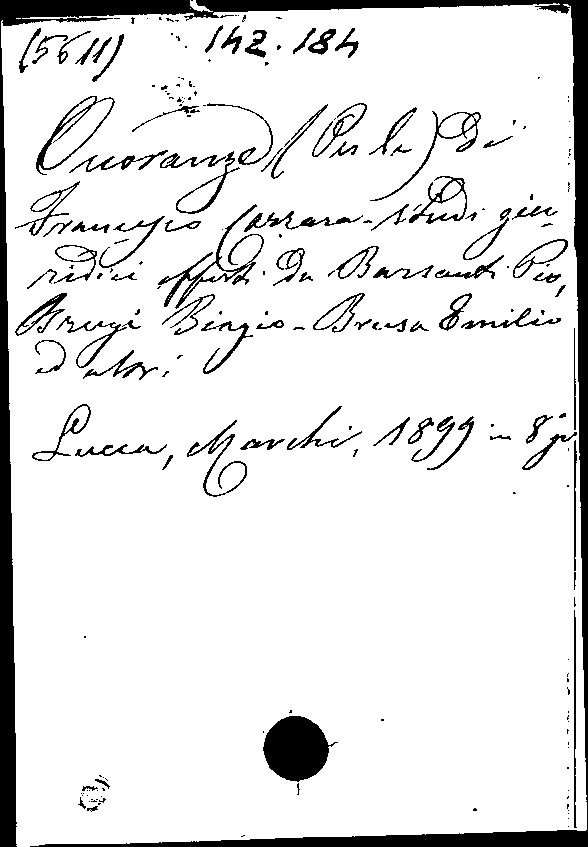 (5611) 142.184
Onoranze (Per le) Di
Francesco Carrara - Studi giu-
ridici offerti Da Barsanti Pio,
Brugi Biagio - Brusa Emilio
ed altri
Lucca, Marchi, 1899 in 8°